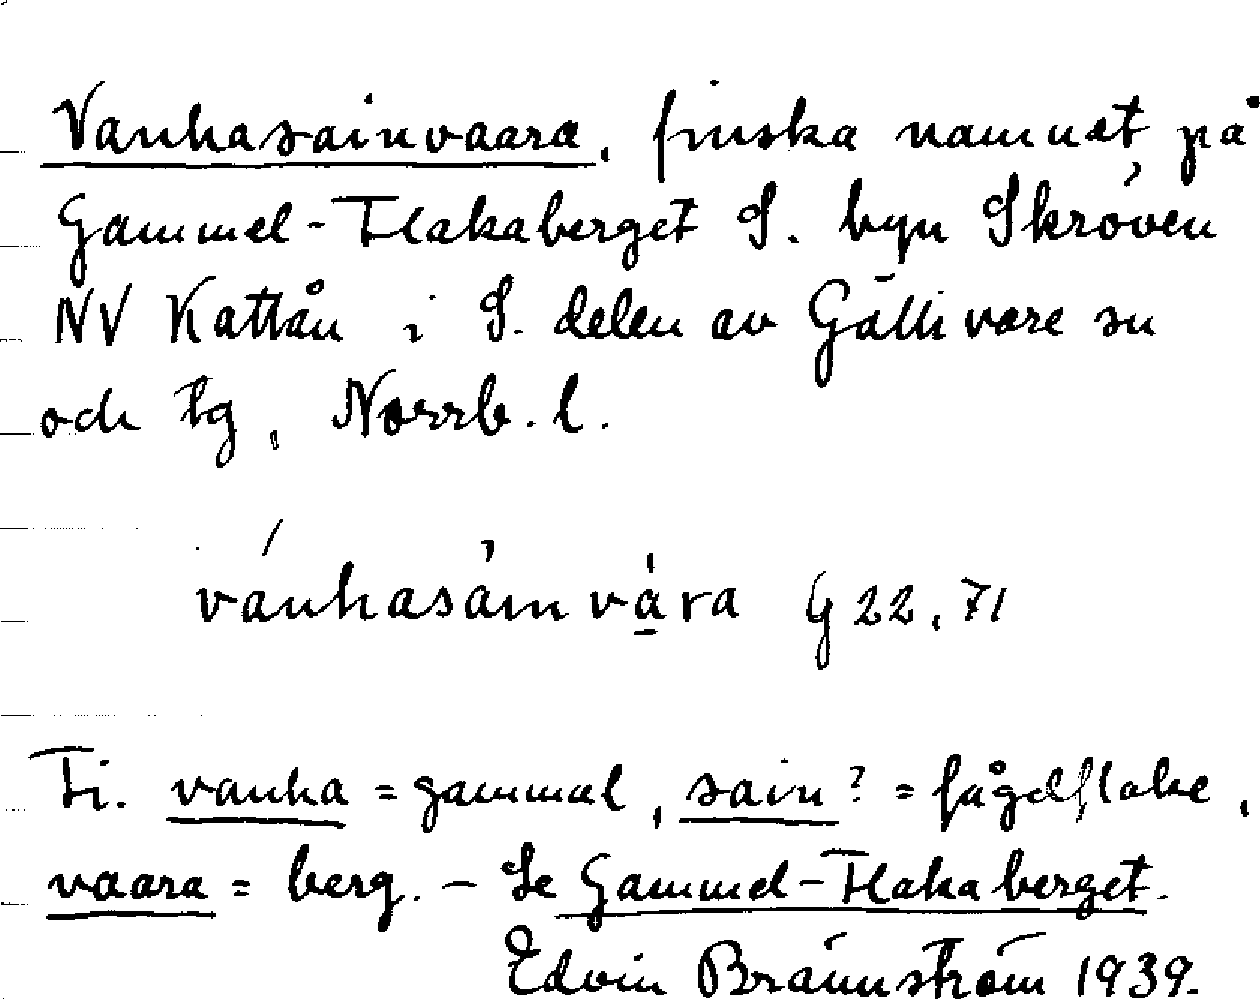 Vanhasainvaara, finska namnet på
Gammel-Flakaberget S. byn Skröven
NV Kattån i S. delen av Gällivare sn
och tg, Norrb. l.
vánhasȧinvȧ̱ra G 22, 71
Fi. vanha = gammal, sain? = fågelflake,
vaara = berg. – Se Gammel-Flakaberget.
Edvin Brännström 1939.